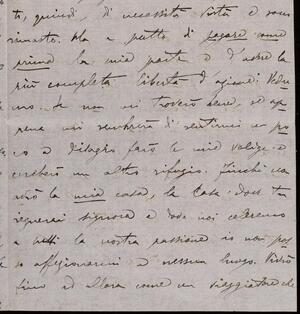 to, quindi, di necessità sarà e sono
rimasto. Ma a patto di pagare come
prima la mia parte e d'avere la
più completa libertà d'azione. Vedre-
mo. Se non mi troverò bene, se ap-
pena mi sembrerà di sentirmi un po-
co a disagio farò le mie valige e
cercherò un altro rifugio. Finchè non
avrò la mia casa, la casa dove tu
regnerai signora e dove noi celeremo
a tutti la nostra passione io non pos-
so affezionarmi a nessun luogo. Vivrò
fino ad allora come un viaggiatore che